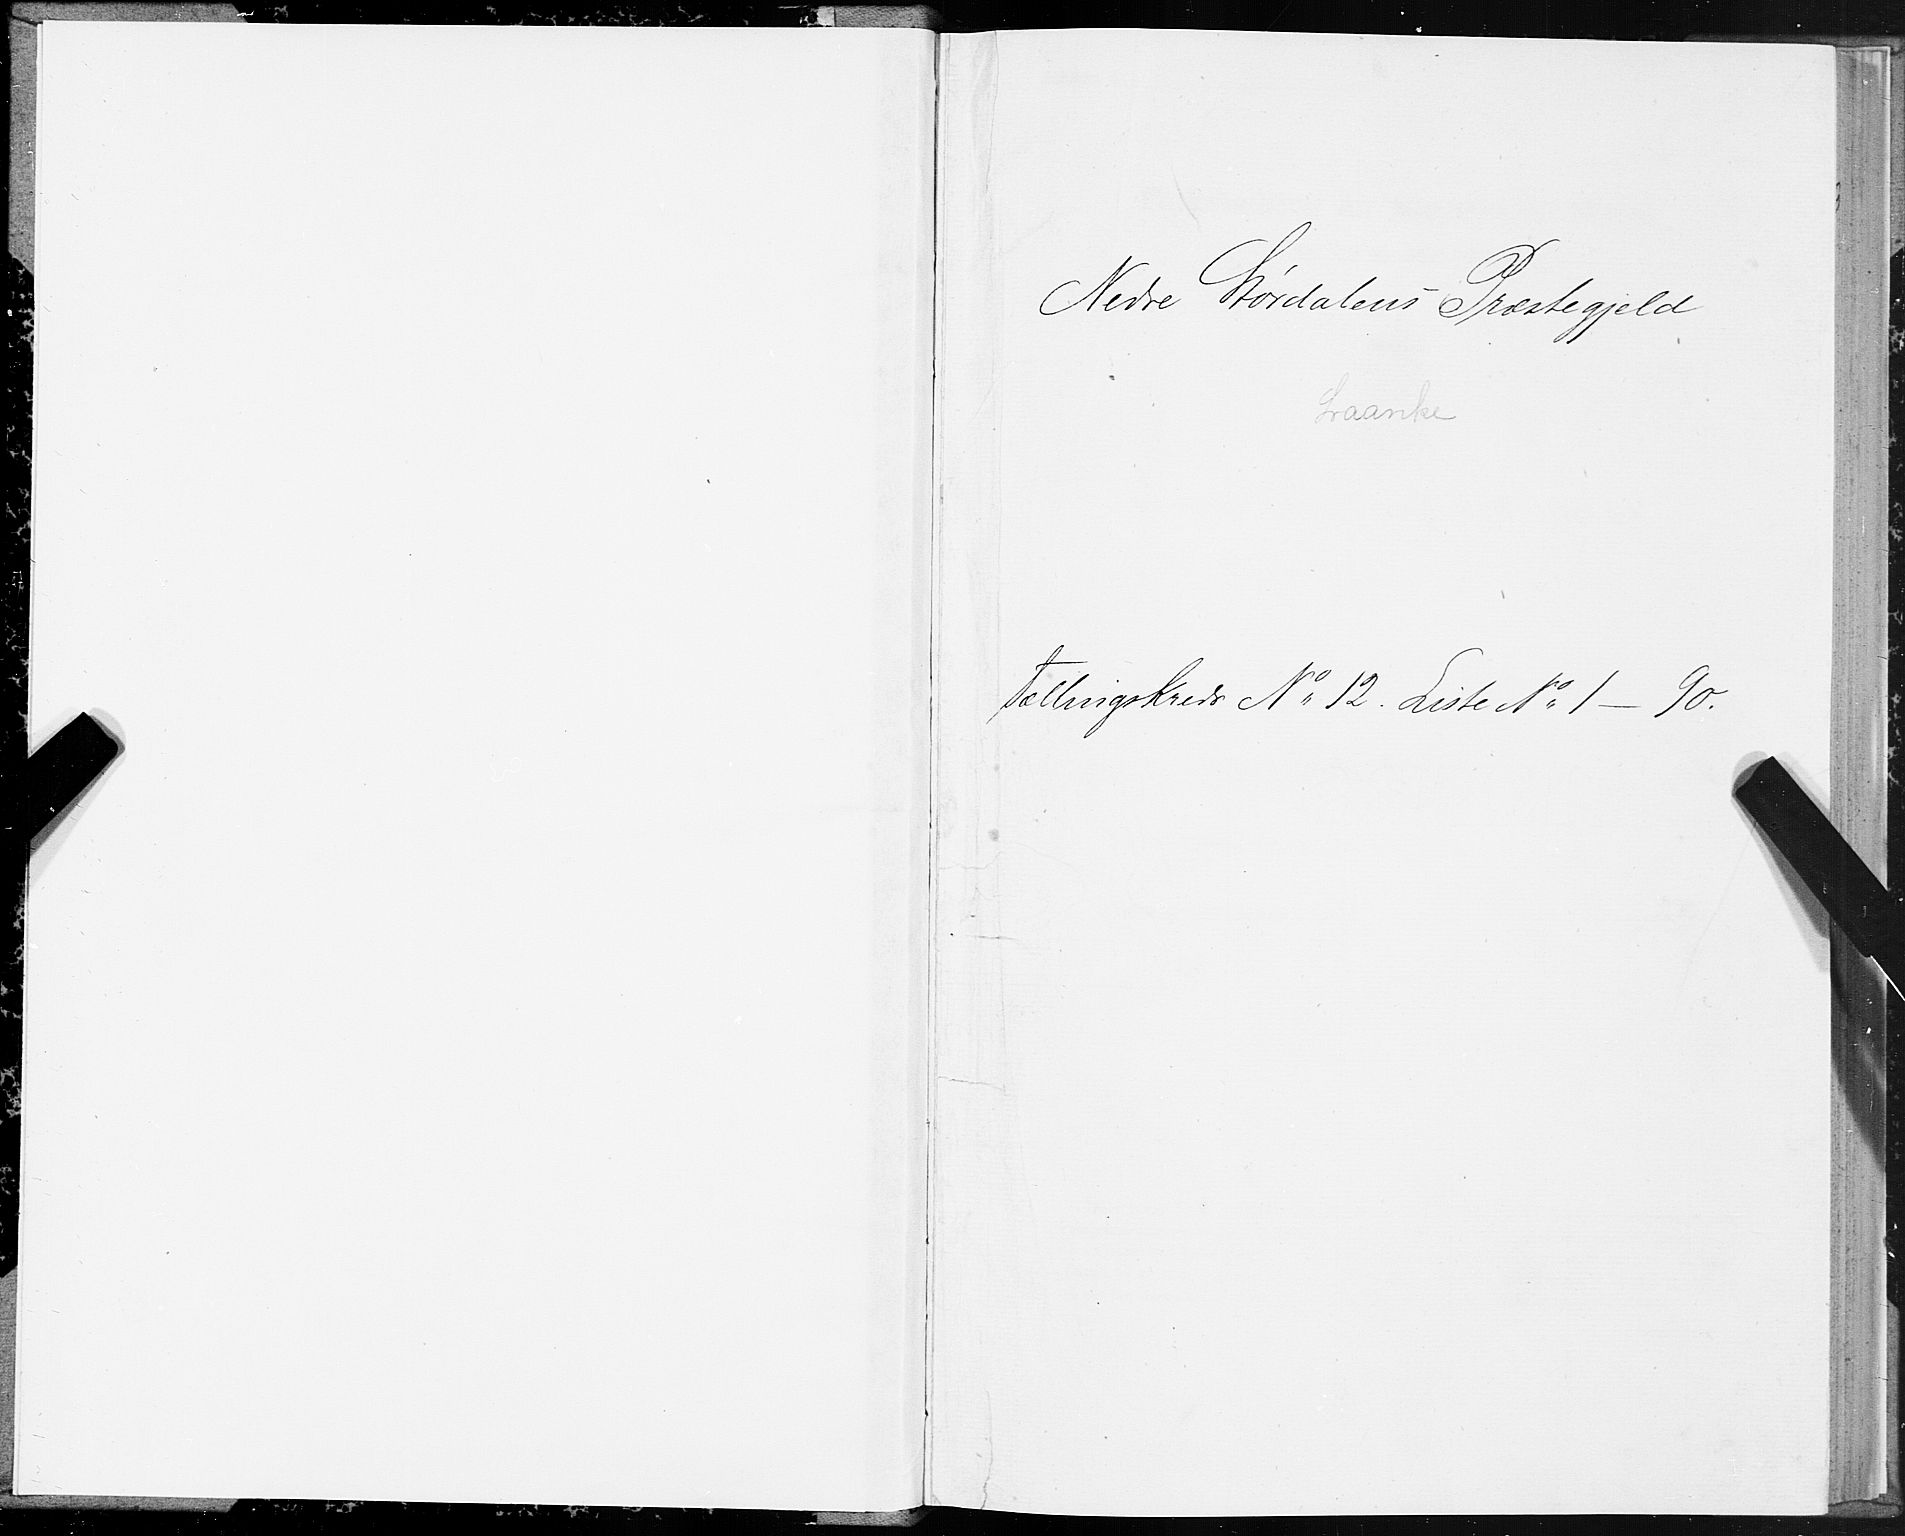 Nedre Størdalens Præstegjeld
Laanke
Tællingskreds No 12. Liste No 1 — 90.